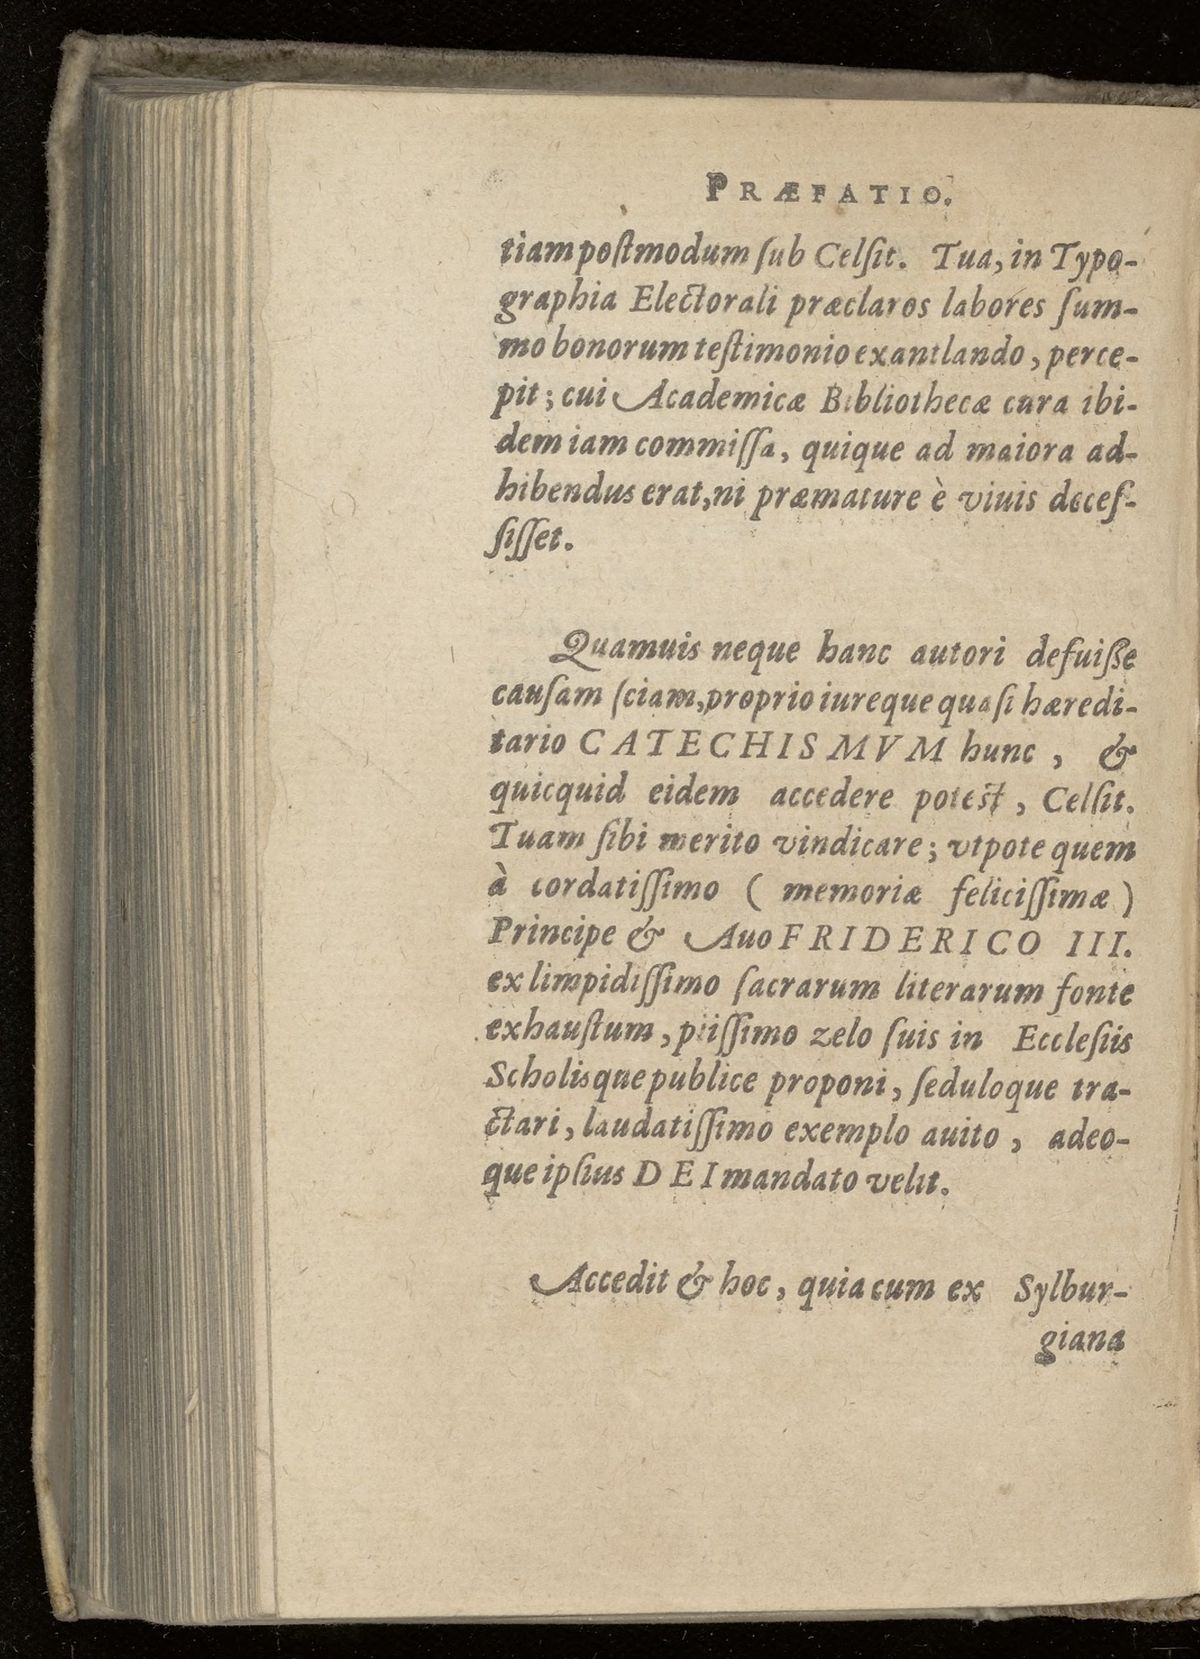 PRÆFATIO.
tiam poſtmodum ſub Celſit. Tua, in Typo-
graphia Electorali præclaros labores ſum-
mo bonorum teſtimonio exantlando, perce-
pit; cui Academicæ Bibliothecæ cura ibi-
dem iam commiſſa, quique ad maiora ad-
hibendus erat, ni præmature è viuis deceſ-
ſiſſet.
Quamuis neque hanc autori defuiße
cauſam ſciam, proprio iureque quaſi hæredi-
tario CATECHISMVM hunc, &
quicquid eidem accedere potest, Celſit.
Tuam ſibi merito vindicare; vtpote quem
à cordatiſſimo (memoriæ feliciſſimæ)
Principe & Auo FRIDERICO III.
ex limpidiſſimo ſacrarum literarum fonte
exhauſtum, piiſſimo zelo ſuis in Eccleſiis
Scholisque publice proponi, ſeduloque tra-
ctari, laudatiſſimo exemplo auito, adeo-
que ipſius DEI mandato velit.
Accedit & hoc, quia cum ex Sylbur-
giana